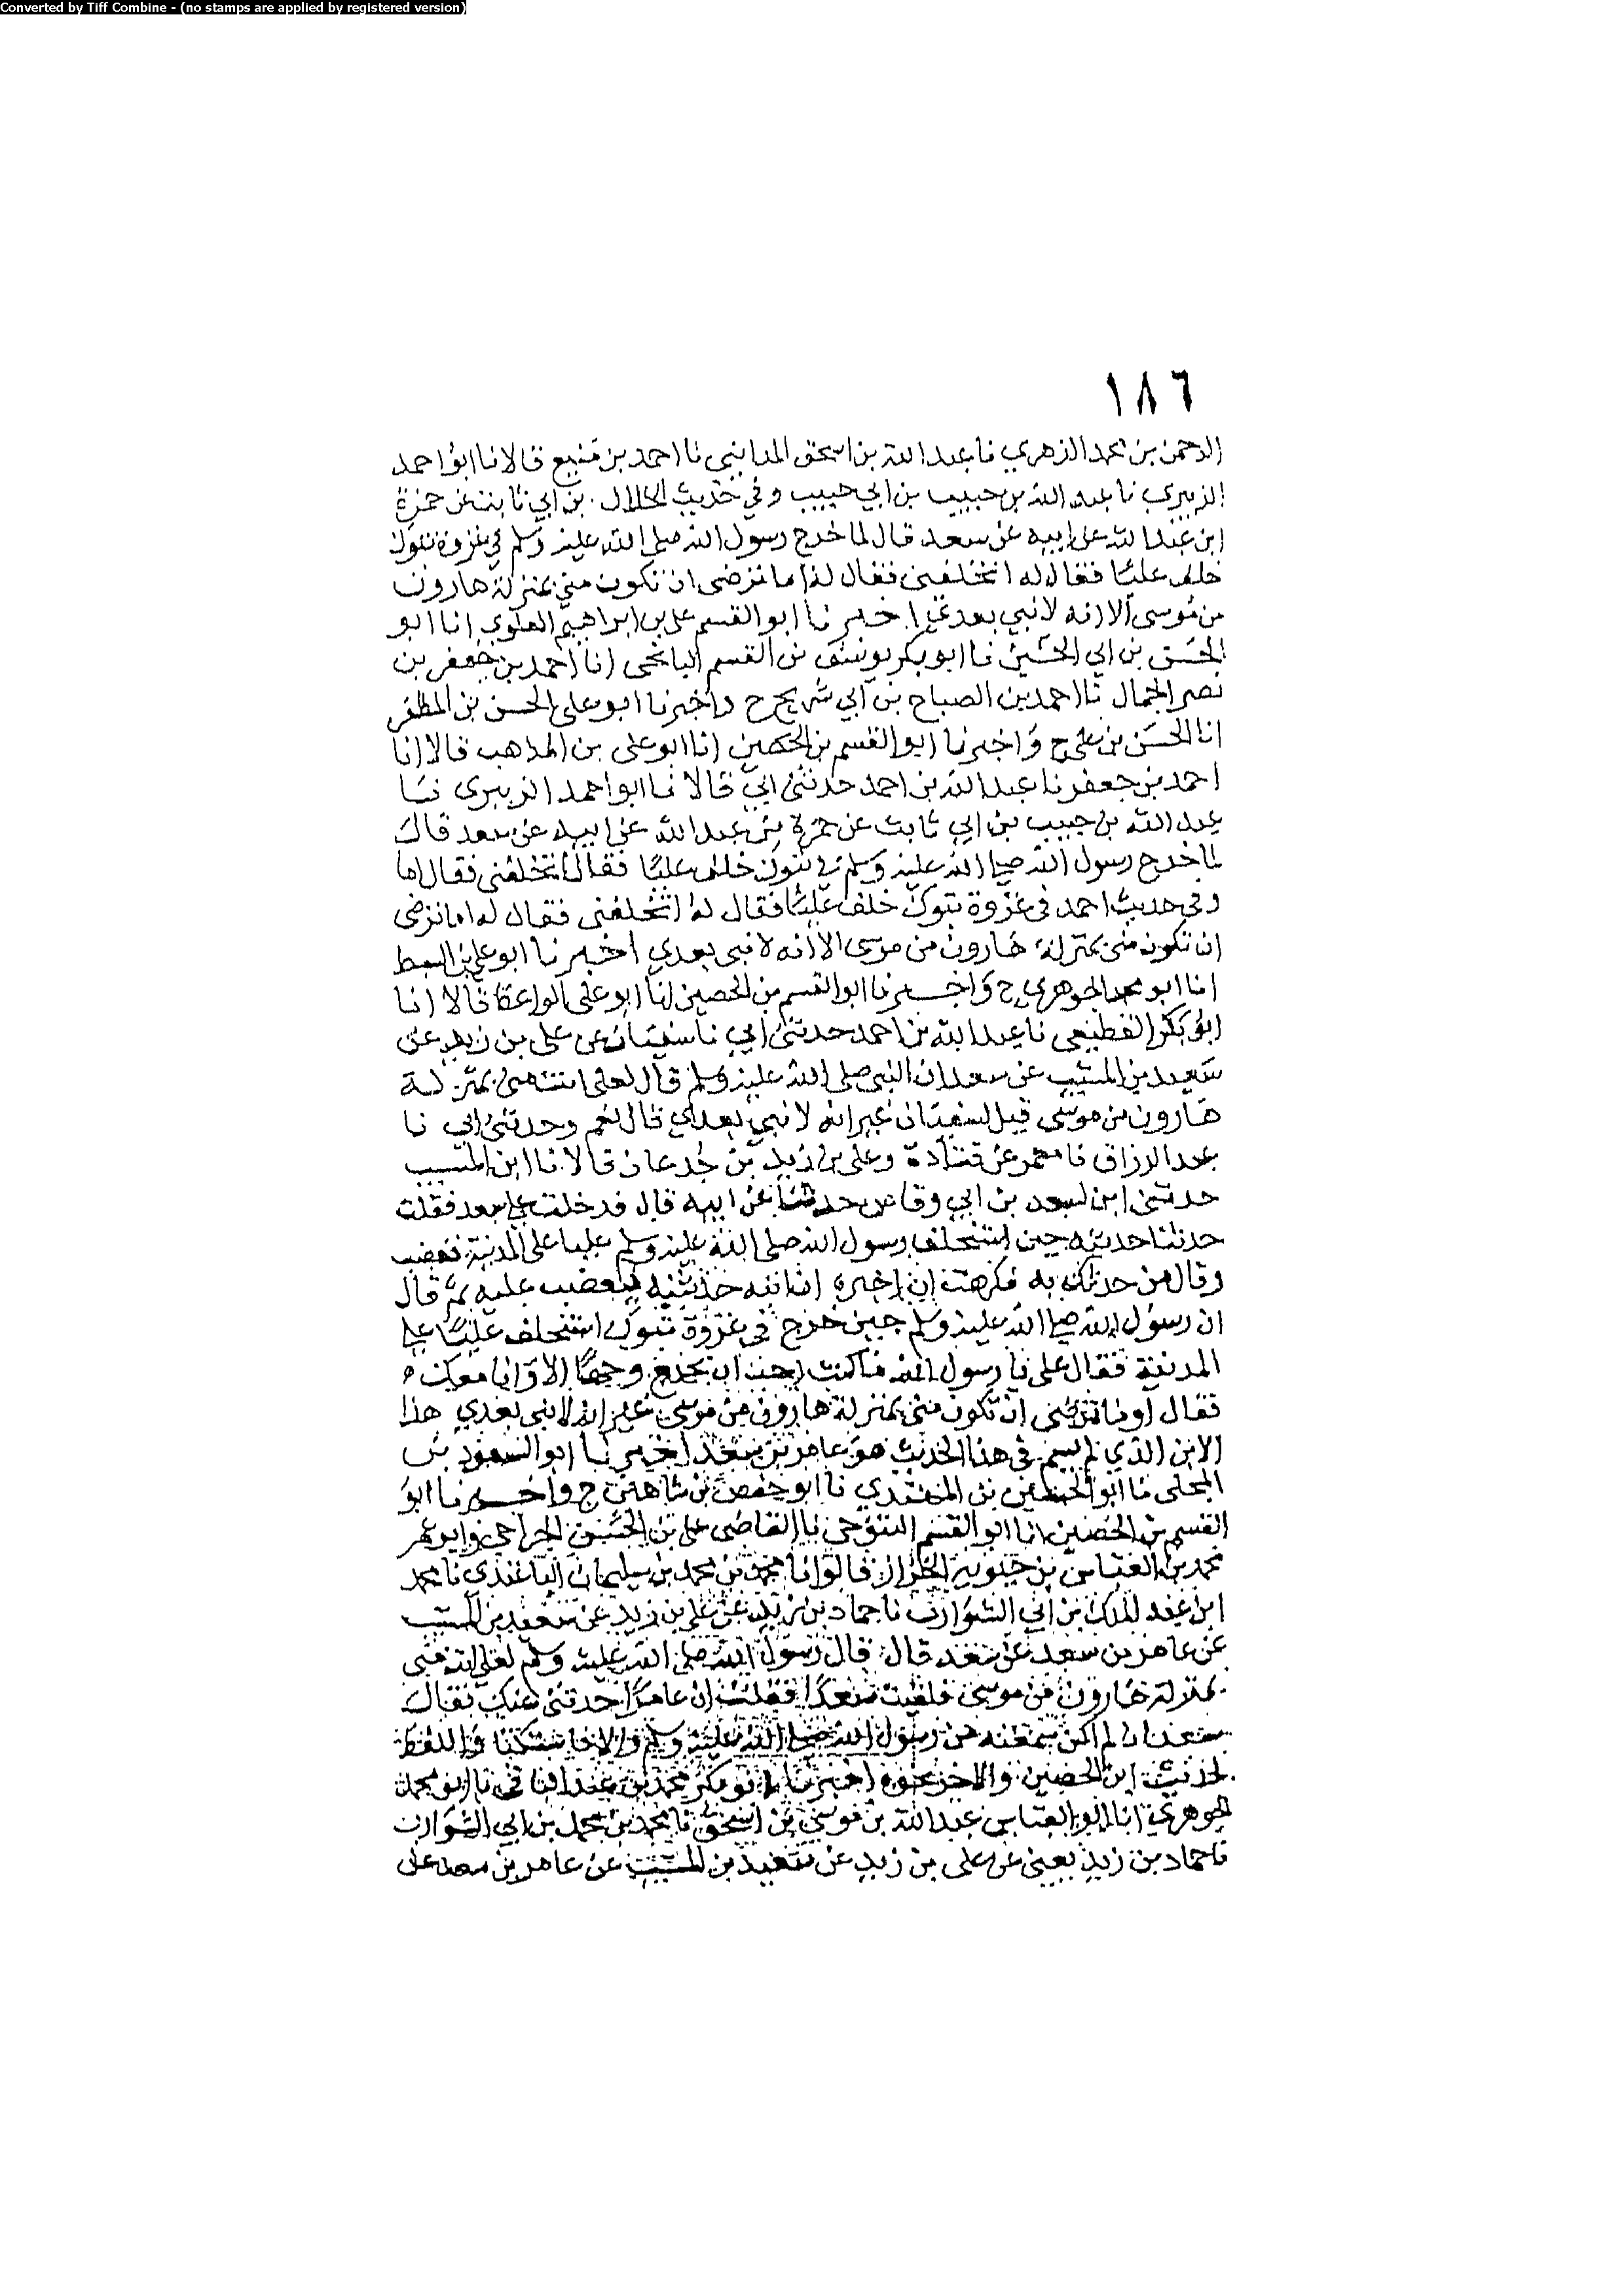 Converted by Tiff Combine - (no stamps are applied by registered version)
١٨٦
الرحمن بن محمد الزهري نا عبد الله بن اسحق المدايني نا احمد بن منيع قالا نا ابو احمد
الزبيري نا عبد الله بن حبيب بن ابي حبيب وفي حديث الخلال بن ابي ثابت عن حمزة
ابن عبد الله عن ابيه عن سعد قال لما خرج رسول الله صلى الله عليه وسلم في غزوة تبوك
خلف عليا فقال له اتخلفني فقال له اما ترضى ان تكون مني بمنزلة هارون
من موسى الا انه لا نبي بعدي اخبرنا ابو القسم علي بن ابراهيم العلوي انا ابو
الحسن بن ابي الحسين نا ابو بكر يوسف بن القسم الميانجي انا احمد بن جعفر بن
نصر الجمال نا احمد بن الصباح بن ابي شريح ح واخبرنا ابو علي الحسن بن المظفر
انا الحسن بن علي ح واخبرنا ابو القسم بن الحصين انا ابو علي بن المذهب قالا انا
احمد بن جعفر نا عبد الله بن احمد حدثني ابي قالا نا ابو احمد الزبيري نا
عبد الله بن حبيب بن ابي ثابت عن حمزة بن عبد الله عن ابيه عن سعد قال
لما خرج رسول الله صلى الله عليه وسلم في تبوك خلف عليا فقال اتخلفني فقال اما
وفي حديث احمد في غزوة تبوك خلف عليا فقال له اتخلفني فقال له اما ترضى
ان تكون مني بمنزلة هارون من موسى الا انه لا نبي بعدي اخبرنا ابو علي بن السبط
انا ابو محمد الجوهري ح واخبرنا ابو القسم بن الحصين انا ابو علي الواعظ قالا انا
ابو بكر القطيعي نا عبد الله بن احمد حدثني ابي نا سفيان عن علي بن زيد عن
سعيد بن المسيب عن سعد ان النبي صلى الله عليه وسلم قال لعلي انت مني بمنزلة
هارون من موسى قيل لسفيان غير انه لا نبي بعدي قال نعم وحدثني ابي نا
عبد الرزاق نا معمر عن قتادة وعلي بن زيد بن جدعان قالا نا ابن المسيب
حدثني ابن لسعد بن ابي وقاص حدثنا عن ابيه قال فدخلت على سعد فقلت
حدثنا حديثه حين استخلف رسول الله صلى الله عليه وسلم عليا على المدينة فغضب
وقال من حدثك به فكرهت ان اخبره ان ابنه حدثنيه فيغضب عليه ثم قال
ان رسول الله صلى الله عليه وسلم حين خرج في غزوة تبوك استخلف عليا على
المدينة فقال علي يا رسول الله ما كنت احب ان تخرج وجها الا وانا معك ه
فقال او ما ترضى ان تكون مني بمنزلة هارون من موسى غير انه لا نبي بعدي هذا
الابن الذي لم يسم في هذا الحديث هو عامر بن سعد اخبرنا ابو السعود بن
المجلي نا ابو الحسين بن المهتدي نا ابو حفص بن شاهين ح واخبرنا ابو
القسم بن الحصين انا ابو القسم التنوخي نا القاضي علي بن الحسن الجراحي وابو عمر
محمد بن العباس بن حيويه الخزاز قالوا انا محمد بن محمد بن سليمان الباغندي نا محمد
ابن عبد الملك بن ابي الشوارب نا حماد بن زيد عن علي بن زيد عن سعيد بن المسيب
عن عامر بن سعد عن سعد قال قال رسول الله صلى الله عليه وسلم لعلي انت مني
بمنزلة هارون من موسى فلقيت سعدا فقلت ان عامرا حدثني عنك فقال
سعد ان لم اكن سمعته من رسول الله صلى الله عليه وسلم والا فاستكتا واللفظ
لحديث ابن الحصين والاخر نحوه اخبرنا ابو بكر محمد بن عبد الباقي نا ابو محمد
الجوهري انا ابو العباس عبد الله بن موسى بن اسحق نا محمد بن محمد بن ابي الشوارب
نا حماد بن زيد يعني عن علي بن زيد عن سعيد بن المسيب عن عامر بن سعد عن